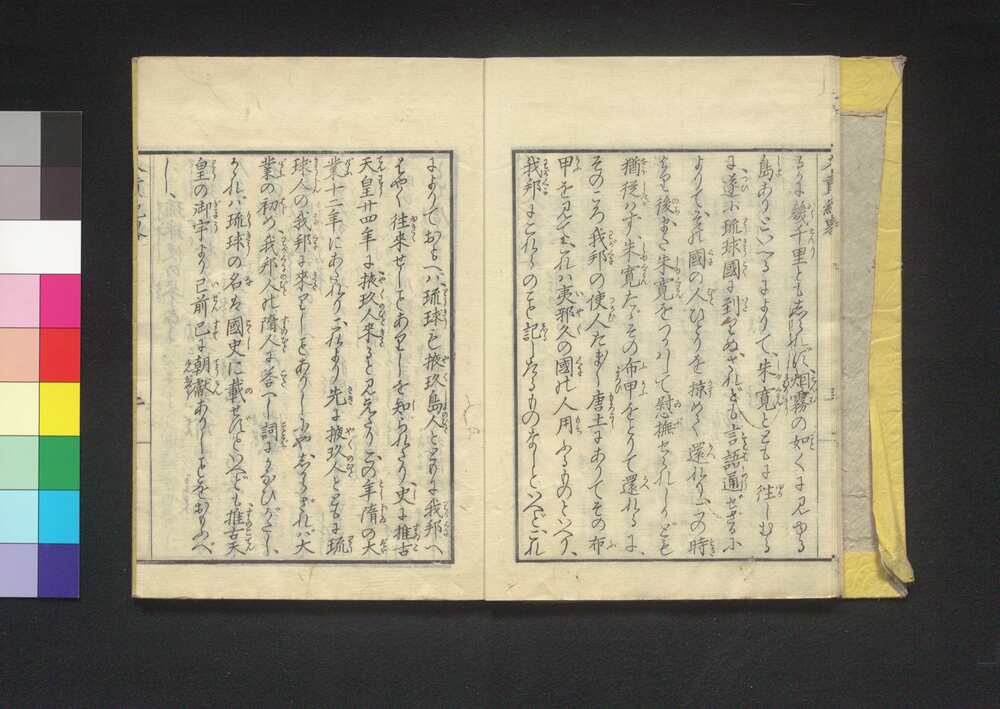 るに幾千里ともしれれず烟霧の如くに見ゆる
島ありといへるによりて、朱寛とともに往しむる
に遂に琉球國に到りぬ、されども言語通ぜざるに
よりて、その國の人ひとりを掠めて還れり、この時
後また朱寛をつかはして慰撫せられしかども
猶従はず、朱寛たゞその布甲をとりて還れるに、
そのころ我邦の使人たま〳〵唐土にありてその布
甲を見て、これハ夷邪久の國の人用ふるものといへり、
我邦にこれらのこと記したるものなしといへど、これ
によりておもへハ琉球を掖玖島人ととなへ我邦へ
はやく往来せしことありしを知られたり、史に推古
天皇廿四年に掖玖人来ると見えたり、この年隋の大
業十二年にあたれり、これより先に掖玖人とともに琉
球人の我邦に来りしことありしにやしからざれバ大
業の初め我邦人の隋人に答へし詞にかなひがたし、
かゝれバ琉球の名は國史に載せずといへども推古天
皇の御宇より已前已に朝献ありしことをおもふべ
し、